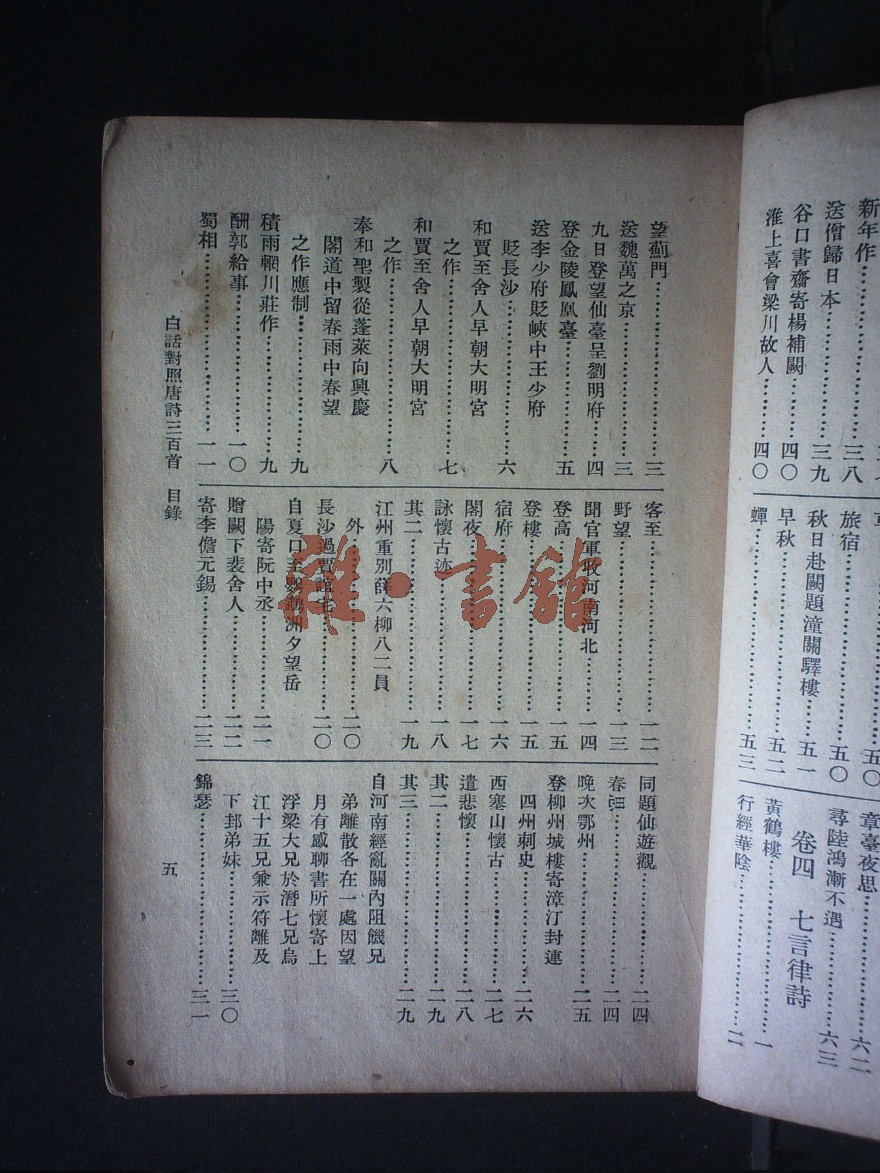 新年作……三八
送僧歸日本……三九
谷口書齋寄楊補闕……四〇
淮上喜會梁川故人……四〇
五〇
旅宿……五〇
秋日赴闕題潼關驛樓……五一
早秋……五二
蟬……五三
章臺夜思……六二
尋陸鴻漸不遇……六三
卷四 七言律詩
黃鶴樓……一
行經華陰……二
望薊門……三
送魏萬之京……三
九日登望仙臺呈劉明府……四
登金陵鳳凰臺……五
送李少府貶峽中王少府
貶長沙……六
和賈至舍人早朝大明宮
之作……七
和賈至舍人早朝大明宮
之作……八
奉和聖製從蓬萊向興慶
閣道中留春雨中春望
之作應制……九
積雨輞川莊作……九
酬郭給事……一〇
蜀相……一一
客至……一二
野望……一三
聞官軍收河南河北……一四
登高……一五
登樓……一五
宿府……一六
閣夜……一七
詠懷古迹……一八
其二……一九
江州重別薛六柳八二員
外……二〇
長沙過賈誼宅……二〇
自夏口至鸚鵡洲夕望岳
陽寄阮中丞……二一
贈闕下裴舍人……二二
寄李儋元錫……二三
同題仙遊觀……二四
春思……二四
晚次鄂州……二五
登柳州城樓寄漳汀封連
四州刺史……二六
西塞山懷古……二七
遣悲懷……二八
其二……二九
其三……二九
自河南經亂關內阻饑兄
弟離散各在一處因望
月有感聊書所懷寄上
浮梁大兄於潛七兄烏
江十五兄兼示符離及
下邽弟妹……三〇
錦瑟……三一
白話對照唐詩三百首 目錄
五
雅·書館